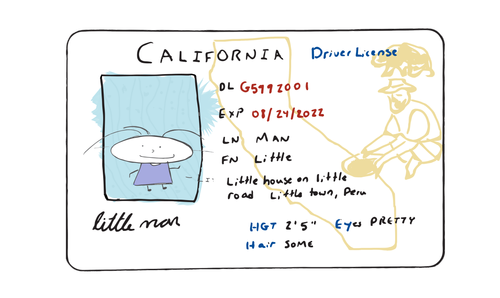 CALIFORNIA Driver License
DL G5992001
EXP 08/24/2022
LN MAN
FN Little
Little house on little
road Little town, Peru
little man
HGT 2'5" Eyes PRETTY
Hair SOME